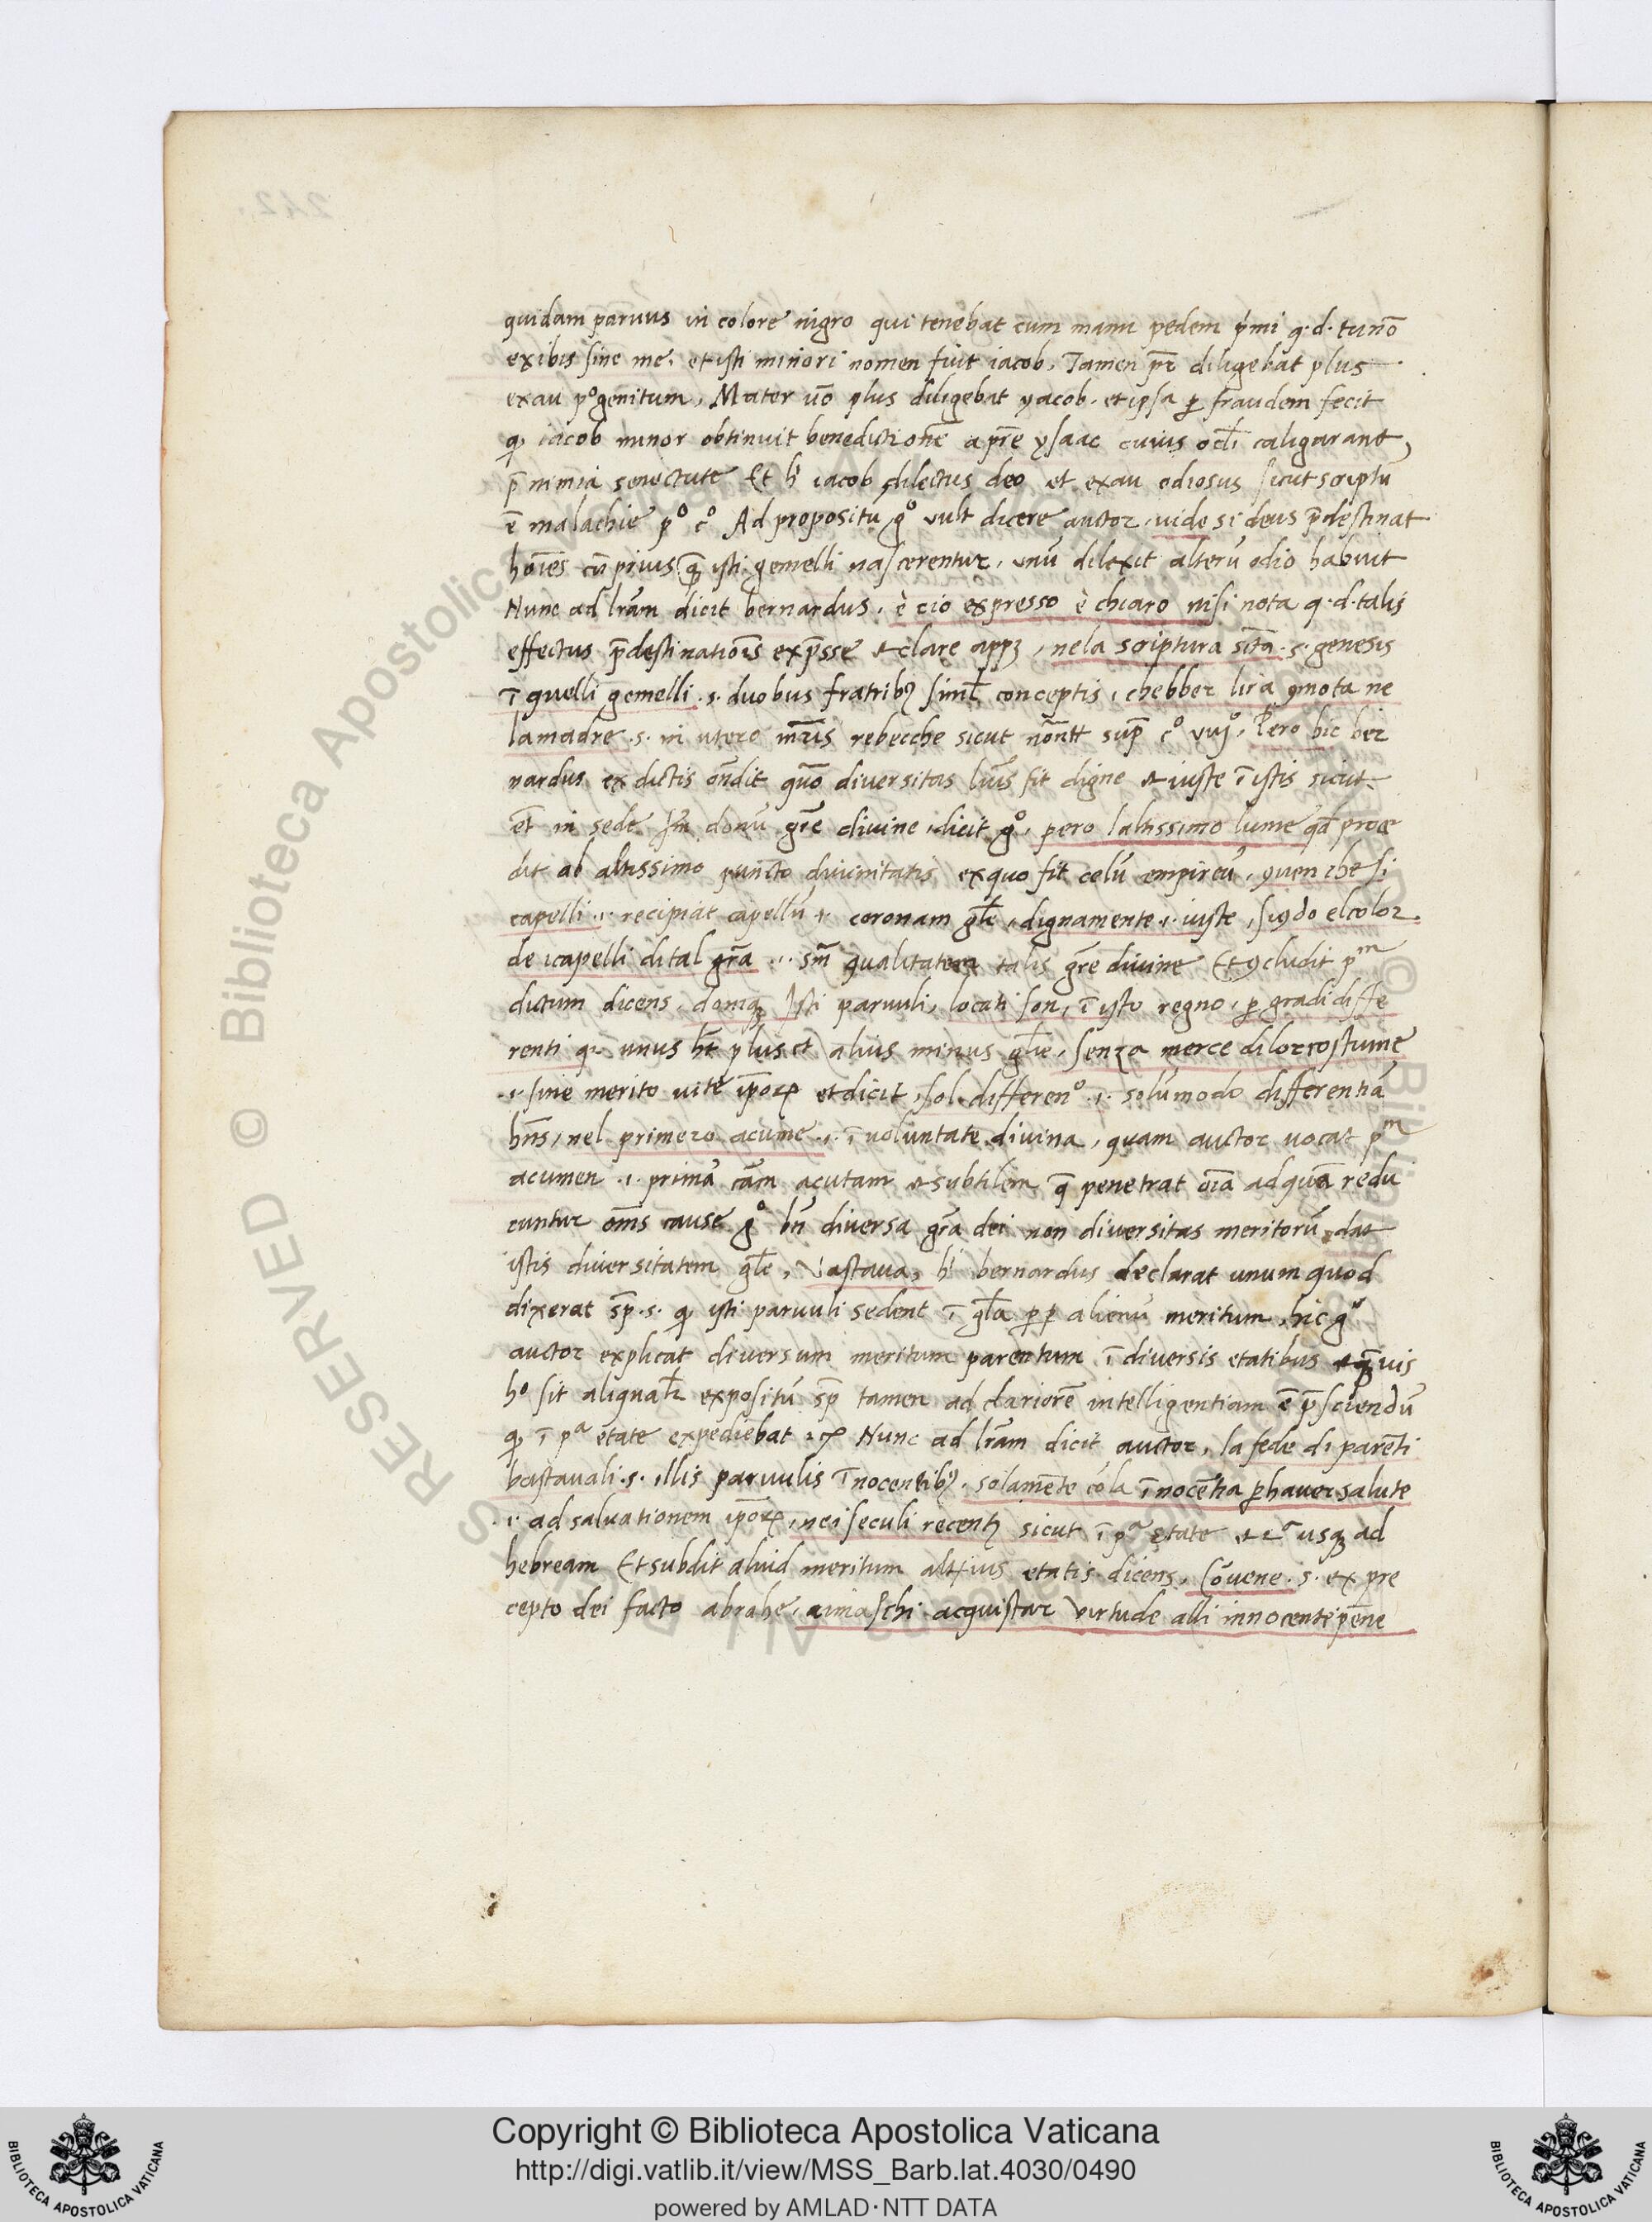 242.
quidam paruus in colore nigro qui tenebat cum manu pedem p'mi q. d. tu nō
exibis sine me. et isti minori nomen fuit iacob. Tamen pr̄ diligebat plus
exau pºgenitum, Mater uō plus diligebat yacob. et ipsa ꝑ fraudem fecit
ꝙ iacob minor obtinuit benedictionē a pr̄e ysaac cuius ocl̄i caligarant,
p̄ nimia senectute Et h' iacob dilectus deo et exau odiosus sicut scriptū
ē malachie pº cº Ad propositū gº vult dicere auctor, vide si deus p̄destinat
hoīes cū prius q̄ꝫ isti gemelli nascerentur, unū dilexit alterū odio habuit
Nunc ad lr̄am dicit bernardus, è cio expresso è chiaro nisi nota q. d. talis
effectus p̄destinatiōis exp̄sse & clare appꝫ, nela scriptura sīta .s. genesis
ī quelli gemelli .s. duobus fratribꝫ siml̄ conceptis, chebber lira ꝯmota ne
lamadre .s. in utero mr̄is rebecche sicut nōntt sup̄ cº viijº. Pero hic ber
nardus ex dictis oñdit quō diversitas luīs fit digne & iuste ī istis sicut
et̄ in sede sm̄ donū gr̄e divine, dicit gº, pero laltissimo lume qd̄ proce
dit ab altissimo puncto divinitatis ex quo fit celū empireū, ꝯven che si
capelli .i. recipiat capellū .i. coronam gl̄e, dignamente .i. iuste, secōdo el color
de icapelli di tal gr̄a .i. sm̄ qualitatem talis gr̄e divine Et ꝯcludit pm
dictum dicens, donqꝫ isti paruuli, locati son, ī isto regno, ꝑ gradi diffe
renti q. unus ht̄ plus et alius minus gl̄ie, senza merce di lor costume
.i. sine merito vite ip̄oꝝ et dicit, sol differenº .i. solūmodo differentiā
hn̄s, nel primero acume .i. ī voluntate divina, quam auctor uocat pm
acumen .i. primā cām acutam & subtilem q̄ penetrat oīa ad quā redu
cuntur oms cause gº bn̄ diversa gr̄a dei non diversitas meritorū dat
istis diversitatem gl̄e, Vastava, h' bernardus declarat unum quod
dixerat sp̄ .s. ꝙ isti paruuli sedent ī gl̄a ꝑp alienū meritum, hic gº
auctor explicat diversum meritum parentum ī diversis etatibus & q̄ꝫvis
hº sit aliqualr̄ expositū sp̄ tamen ad clariorē intelligentiam ē p̄sciendū
ꝙ ī pª etate expediebat ꝛꝝ Nunc ad lr̄am dicit auctor, la fede di parēti
bastavali .s. illis paruulis īnocentibꝫ, solamēte cōla īnocētia ꝑ haver salute
.i. ad salvationem ip̄oꝝ, nei seculi recentꝫ sicut ī pª etate & 2ª usqꝫ ad
hebream Et subdit aliud meritum altius etatis dicens, Cōvene .s. ex pre
cepto dei facto abrahe, aimaschi acquistar virtude alli innocenti pēne
Copyright © Biblioteca Apostolica Vaticana
http://digi.vatlib.it/view/MSS_Barb.lat.4030/0490
powered by AMLAD · NTT DATA
BIBLIOTECA APOSTOLICA VATICANA
BIBLIOTECA APOSTOLICA VATICANA